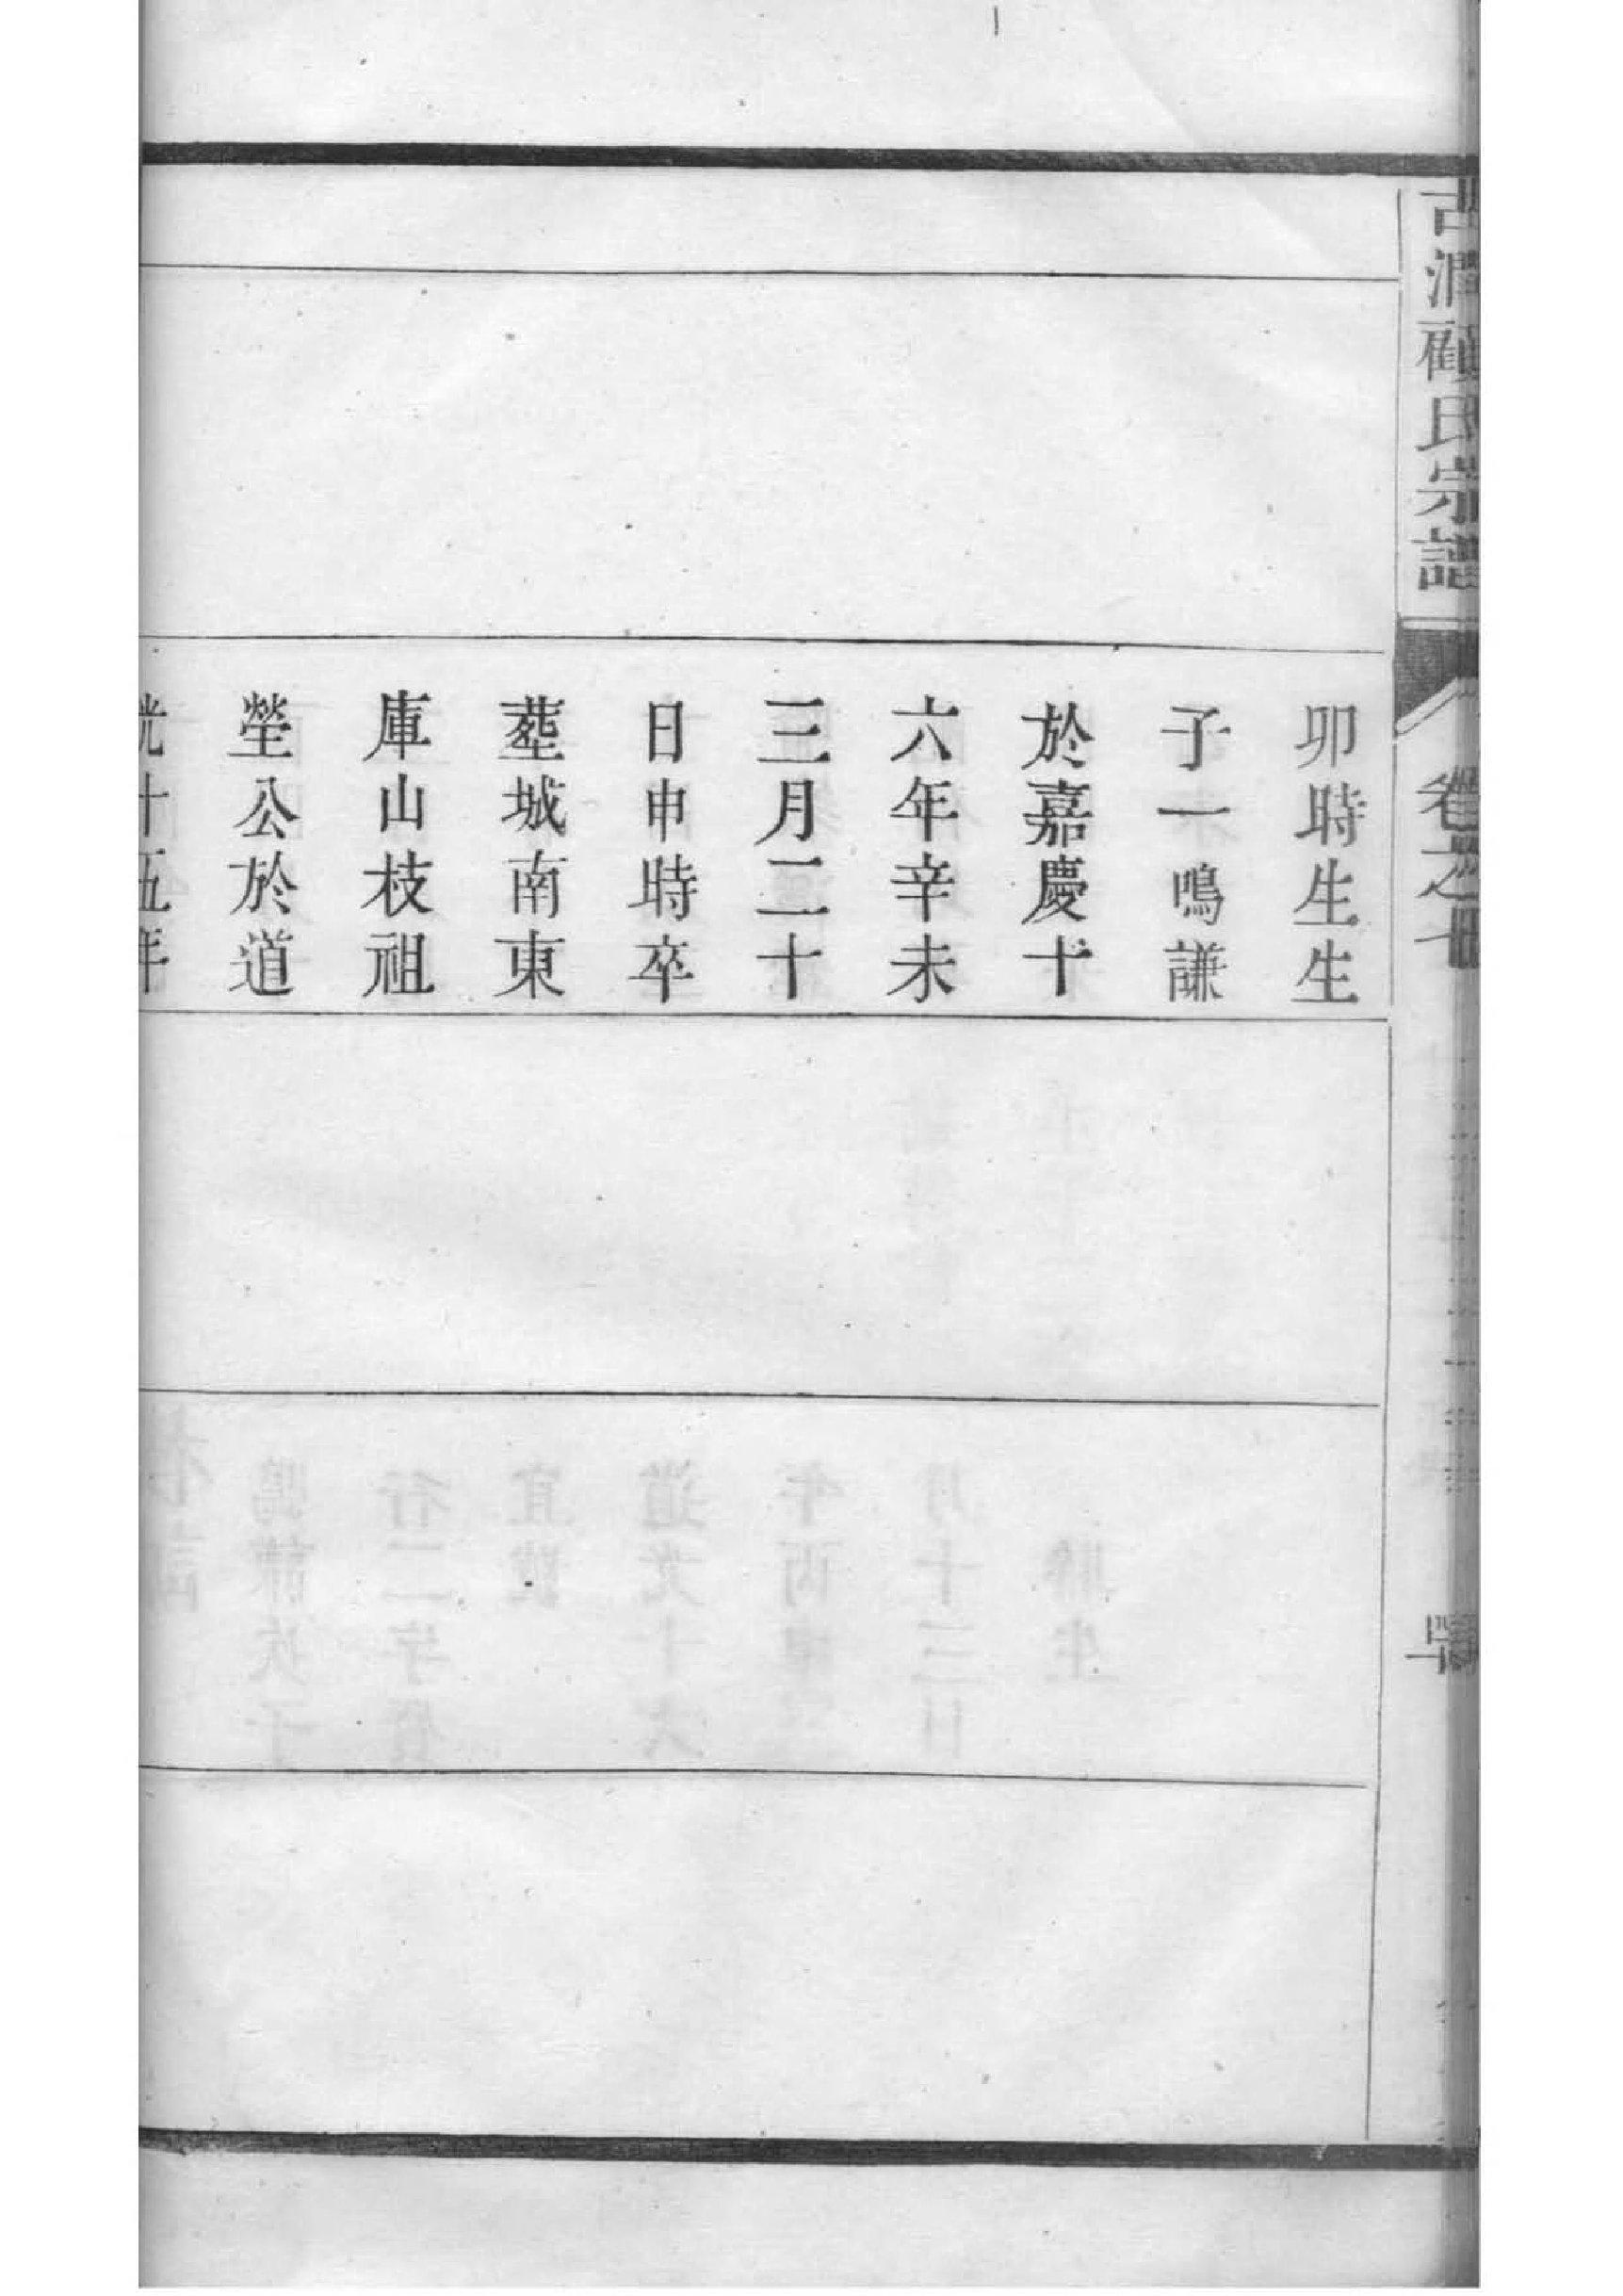 古潤顧氏宗譜
卷之
卯時生生
子一鳴謙
於嘉慶十
六年辛未
三月二十
日申時卒
葬城南東
庫山枝祖
塋公於道
光十五年